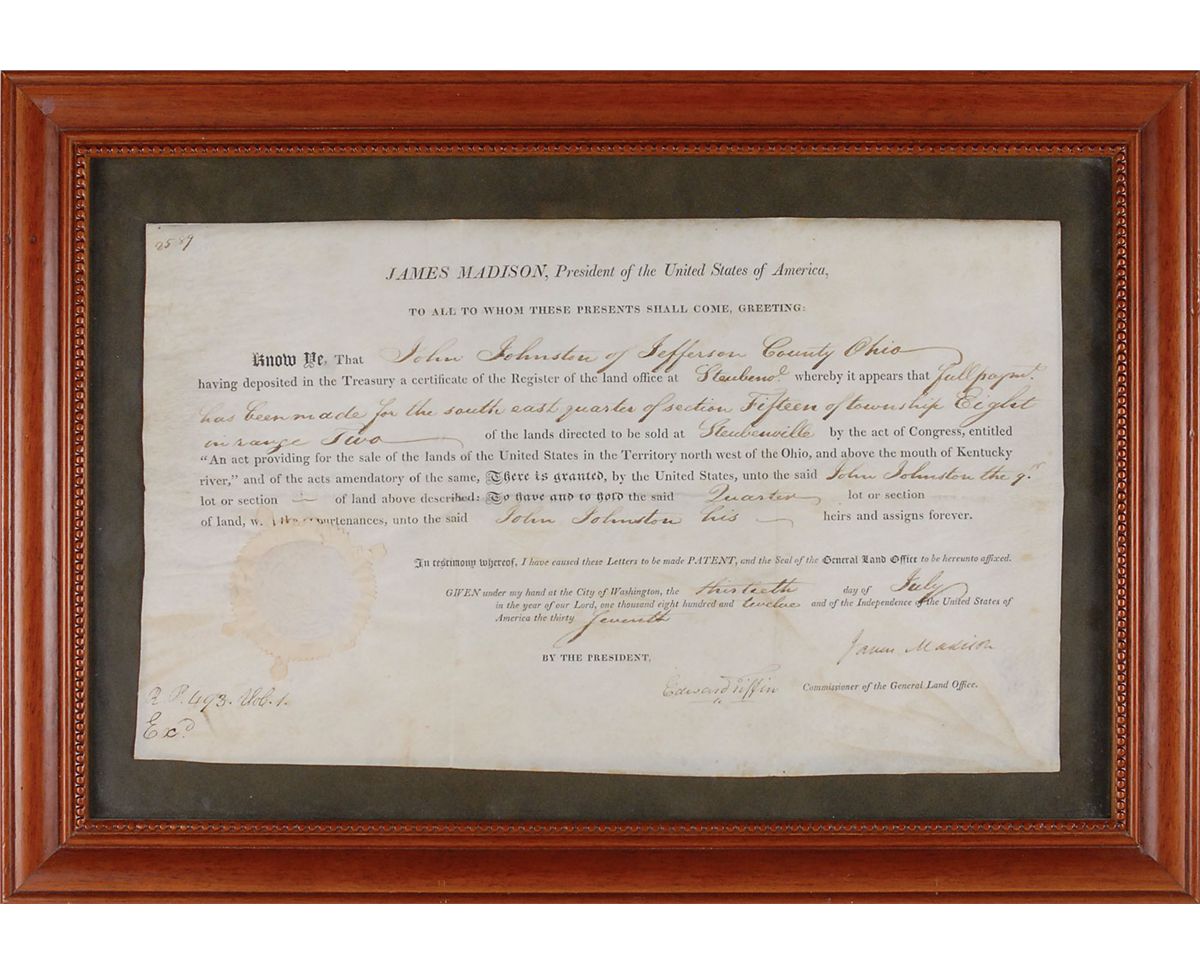 2589
JAMES MADISON, President of the United States of America,
TO ALL TO WHOM THESE PRESENTS SHALL COME, GREETING:
Know Ye, That John Johnston of Jefferson County Ohio
having deposited in the Treasury a certificate of the Register of the land office at Steubenve. whereby it appears that full paymt.
has been made for the south east quarter of section Fifteen of township Eight
in range Two of the lands directed to be sold at Steubenville by the act of Congress, entitled
"An act providing for the sale of the lands of the United States in the Territory north west of the Ohio, and above the mouth of Kentucky
river," and of the acts amendatory of the same, There is granted, by the United States, unto the said John Johnston the qr.
lot or section of land above described: To have and to hold the said Quarter lot or section
of land, the appurtenances, unto the said John Johnston his heirs and assigns forever.
In testimony whereof, I have caused these Letters to be made PATENT, and the Seal of the General Land Office to be hereunto affixed.
GIVEN under my hand at the City of Washington, the thirtieth day of July
in the year of our Lord, one thousand eight hundred and twelve and of the Independence of the United States of
America the thirty seventh
BY THE PRESIDENT,
James Madison
Edward Tiffin Commissioner of the General Land Office.
R P. 493. Vol. 1.
Exd.